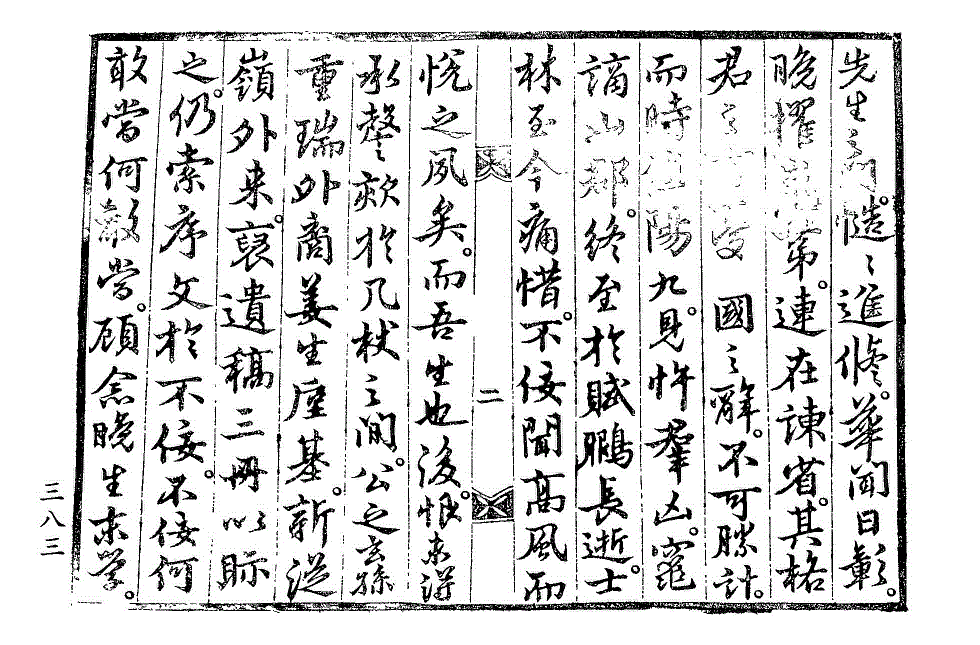 先生之慥〻進修。華聞日彰。
晚擢第。連在諫省。其格
君之國之辭。不可勝計。
而時値陽九。見忤羣凶。竄
謫山郡。終至於賦鵩長逝。士
林至今痛惜。不佞聞高風而
二
悅之夙矣。而吾生也後。恨未得
承謦欬於几杖之間。公之玄孫
重瑞外裔姜生基。新從
嶺外来。裒遺稿三冊以眎
之。仍索序文於不佞。不佞何
敢當何敢當。顧念晚生末學。
三八三